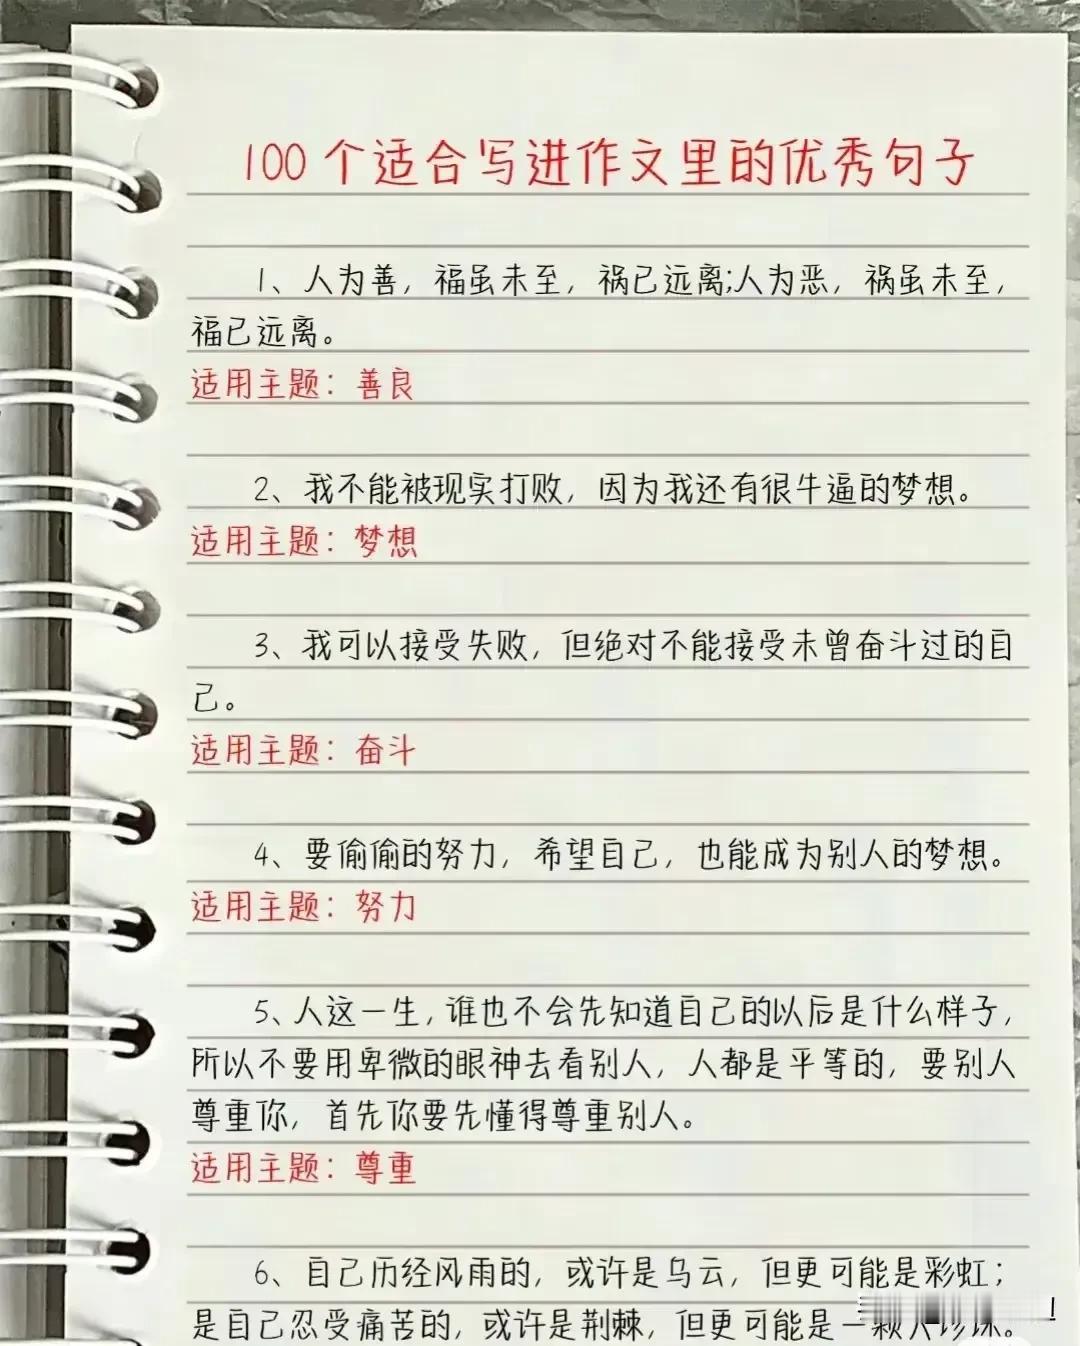 100个适合写进作文里的优秀句子
1、人为善，福虽未至，祸已远离;人为恶，祸虽未至，
福已远离。
适用主题：善良
2、我不能被现实打败，因为我还有很牛逼的梦想。
适用主题：梦想
3、我可以接受失败，但绝对不能接受未曾奋斗过的自
己。
适用主题：奋斗
4、要偷偷的努力，希望自己，也能成为别人的梦想。
适用主题：努力
5、人这一生，谁也不会先知道自己的以后是什么样子，
所以不要用卑微的眼神去看别人，人都是平等的，要别人
尊重你，首先你要先懂得尊重别人。
适用主题：尊重
6、自己历经风雨的，或许是乌云，但更可能是彩虹；
是自己忍受痛苦的，或许是荆棘，但更可能是一颗